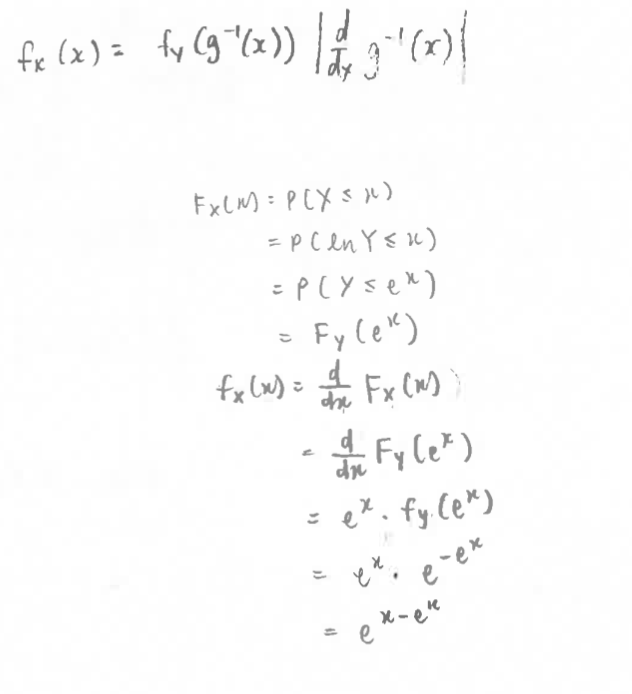 fx (x) = fy (g⁻¹(x)) |d/dx g⁻¹(x)|
Fx(x) = P(X ≤ x)
= P(ln Y ≤ x)
= P(Y ≤ eˣ)
= Fy (eˣ)
fx(x) = d/dx Fx(x)
= d/dx Fy(eˣ)
= eˣ . fy(eˣ)
= eˣ . e^(-eˣ)
= e^(x-eˣ)